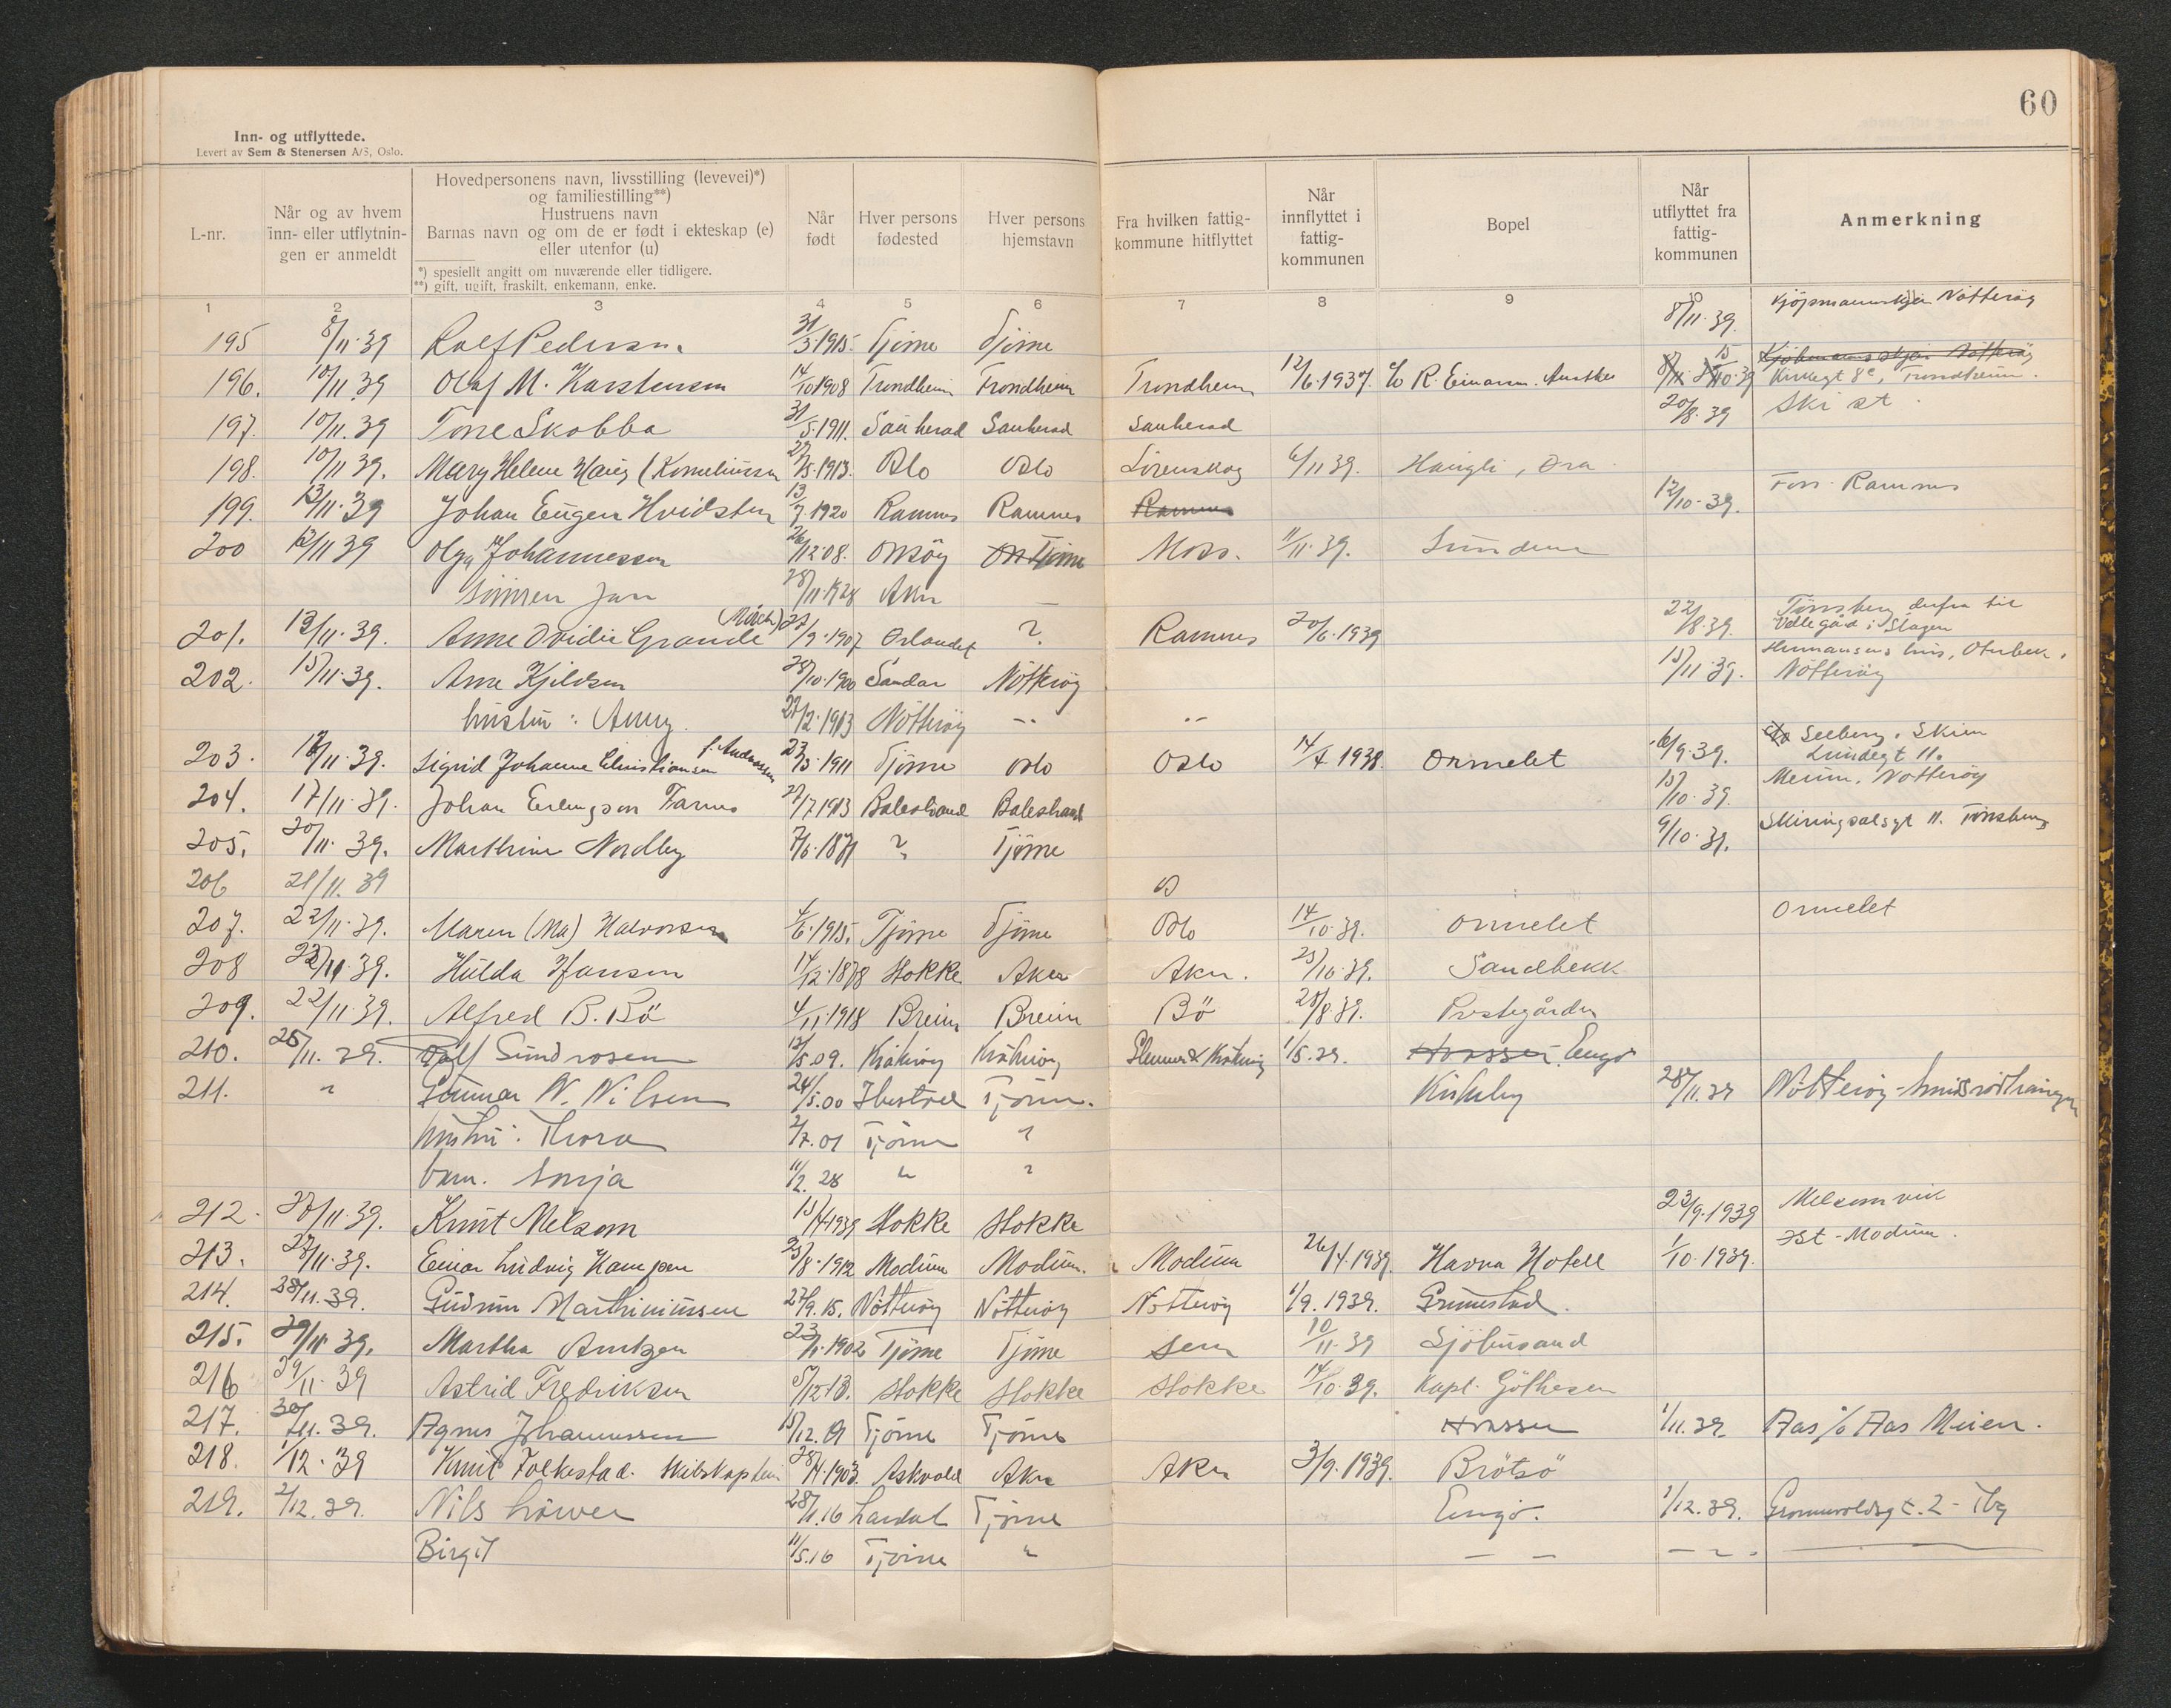 60
Inn- og utflyttede.
Levert av Sem & Stenersen A/S, Oslo.
L-nr. | Når og av hvem inn- eller utflytningen er anmeldt | Hovedpersonens navn, livsstilling (levevei)*) og familiestilling**) Hustruens navn Barnas navn og om de er født i ekteskap (e) eller utenfor (u) *) spesiellt angitt om nuværende eller tidligere. **) gift, ugift, fraskilt, enkemann, enke. | Når født | Hver persons fødested | Hver persons hjemstavn | Fra hvilken fattigkommune hitflyttet | Når innflyttet i fattigkommunen | Bopel | Når utflyttet fra fattigkommunen | Anmerkning
1 2 3 4 5 6 7 8 9 10
195 8/11.39 Rolf Pedersen 31/3.1915. Tjöme Tjöme 8/11.39. Nötteröy
196. 10/11.39 Olaf M. Karstensen 14/10 1908 Trondheim Trondheim Trondheim 12/6.1937. c/o R. Einarsen. 15/10.39 Kirkegt 8c, Trondheim.
197. 10/11.39 Tone Skobba 31/5.1911. Sauherad Sauherad Sauherad 20/8.39 Ski st.
198. 10/11 39. Mary Helene Haug (Korneliussen 27/5.1913. Oslo Oslo Lörenskog 6/11 39. Haugli,
199. 13/11.39 Johan Eugen Hvidsten 13/7.1920 Ramnes Ramnes Ramnes 12/10.39. Ramnes
200 13/11 39 Olga Johannessen 26/12.08. Onsöy Tjöme Moss. 11/11.39. Sundene
Sönnen Jan 28/11.1928 Aker
201. 13/11.39. Anne Ovidie Grande 27/9.1907 Örlandet ? Ramnes 20/6.1939 22/8.39. Tönsberg derfra til
Vallegård i Slagen
202. 15/11.39. Arne Kjeldsen 28/10.1900 Sandar Nötteröy 15/11.39. Hermansens hus, Oterbekk.
Nötteröy
hustru: Anny. 27/12.1913 Nötteröy
203. 16/11.39. Sigrid Johanne Christiansen f. Andreassen 23/5.1911 Tjöme Oslo Oslo 14/7 1938. Ormelet 6/9.39. c/o Seeberg. Skien
Lundegt 11.
204. 17/11.39. Johan Erlingson Farnes 27/7.1913 Balestrand Balestrand 15/10.39. Meum. Nötteröy
205. 20/11.39. Marthine Nordby 7/6.1871 ? Tjöme 9/10.39. Skiringsalsgt 11. Tönsberg
206 21/11.39
207. 22/11.39. Maren (Ma) Halvorsen 4/6.1915. Tjöme Tjöme Oslo 14/10.39. Ormelet Ormelet
208 22/11.39. Hulda Hansen 17/12.1878 Stokke Aker Aker. 25/10.39. Sandbekk
209. 22/11.39. Alfred B. Bö 4/11.1918 Breim Breim Bö 28/8.39. Prestegården
210. 25/11.39. Rolf Sundrosen 15/5.09. Kråkeröy Kråkeröy Kråkeröy 1/5.39. Engö
211. " Gunnar N. Nilsen 24/5.00 Ibestad Tjöme. Kirkeby 28/11.39 Nötteröy-
hustru: Thora 2/7.01 Tjöme "
barn. Sonja 11/2.28 " "
212. 27/11.39. Knut Melsom 15/4 1939 Stokke Stokke 23/9.1939 Melsomvik
213. 27/11.39. Einar Ludvig Kampen 25/8.1912 Modum Modum. Modum 26/4.1939. Havna Hotell 1/10.1939. Modum.
214. 28/11.39. Gudrun Marthiniussen 27/9.15. Nötteröy Nötteröy Nötteröy 1/9.1939. Grimestad.
215. 29/11 39. Martha Arntzen 23/1.1902 Tjöme Tjöme Sem 10/11.39 Sjöbusand
216 29/11.39 Astrid Fredriksen 5/12.13. Stokke Stokke Stokke 14/10.39. Kapt. Göthesen
217. 30/11.39. Agnes Johannessen 15/12.19 Tjöme Tjöme 1/11.39 Aas c/o Aas Meieri.
218. 1/12.39 Knut Folkestad. Skibskaptein 28/4.1903. Askvold Aker Aker 3/9.1939. Brötsö
219. 2/12.39. Nils Löwer 28/1.16 Lardal Tjöme Engö. 1/12.39. Grönnvoldsgt. 2 - Tbg
Birgit 11/5.16 Tjöme "